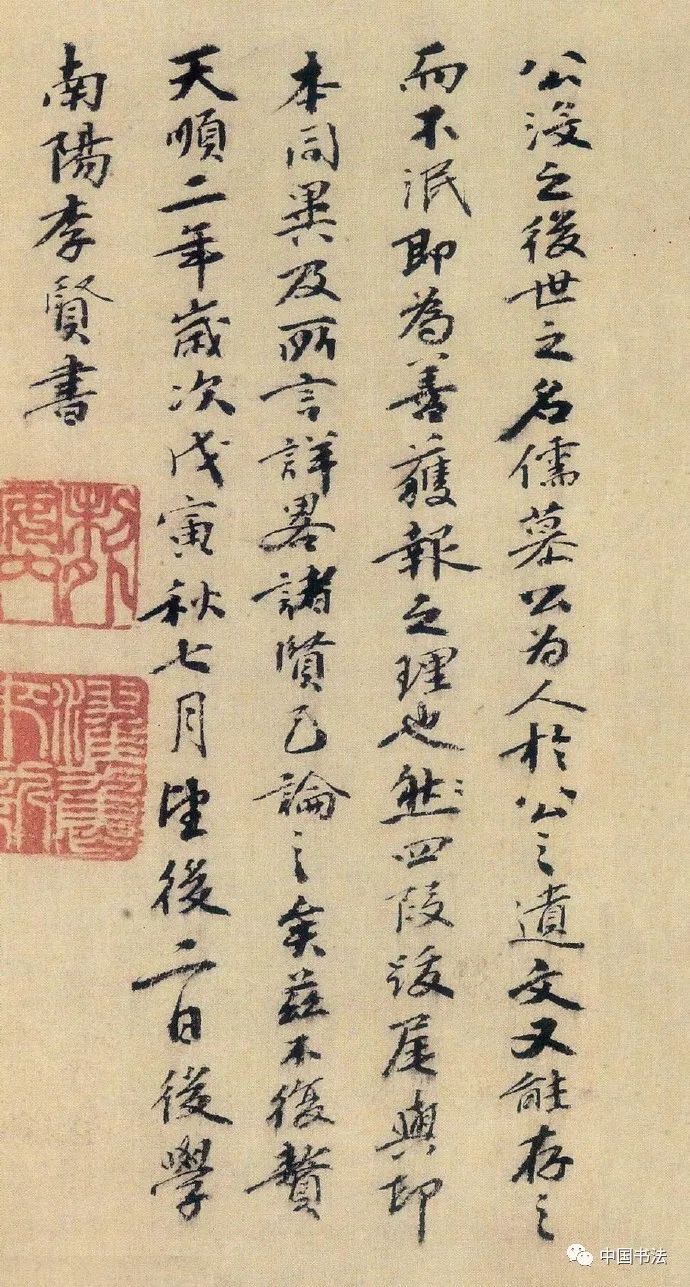 公没之後世之名儒慕公为人於公之遺文又能存之
而不泯即為善獲報之理也然四段跋尾與印
本同異及所言詳畧諸賢已論之矣茲不復贅
天順二年嵗次戊寅秋七月望後二日後學
南陽李賢書
中国书法